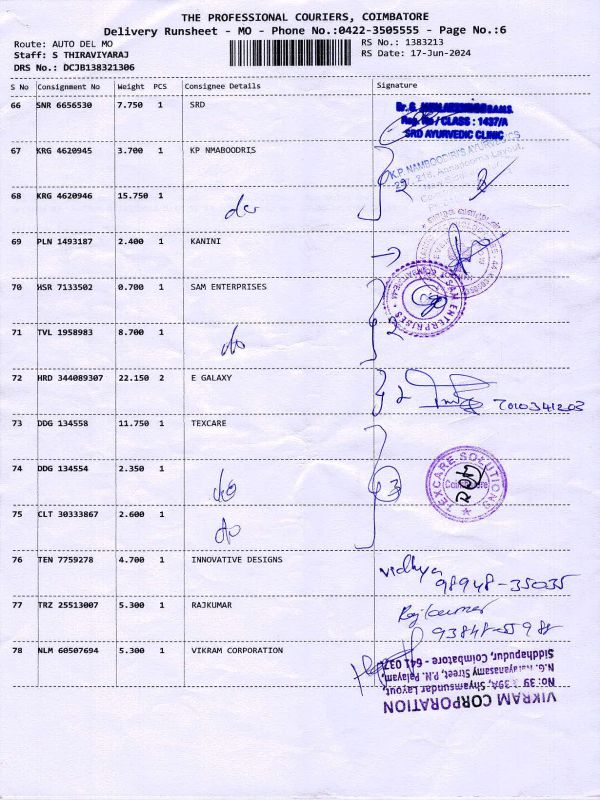 THE PROFESSIONAL COURIERS, COIMBATORE
Delivery Runsheet - MO - Phone No.:0422-3505555 - Page No.:6
Route: AUTO DEL MO
Staff: S THIRAVIYARAJ
DRS No.: DCJB138321306
RS No.: 1383213
RS Date: 17-Jun-2024
S No Consignment No Weight PCS Consignee Details Signature
66 SNR 6656530 7.750 1 SRD
CLASS : 1437/A
SRD AYURVEDIC CLINIC
67 KRG 4620945 3.700 1 KP NMABOODRIS
K.P.NAMBOODIRI'S AYURVEDICS
68 KRG 4620946 15.750 1 do
2
69 PLN 1493187 2.400 1 KANINI
70 HSR 7133502 0.700 1 SAM ENTERPRISES
SAM ENTERPRISES
71 TVL 1958983 8.700 1 do
2
72 HRD 344089307 22.150 2 E GALAXY
2 7010341203
73 DDG 134558 11.750 1 TEXCARE
74 DDG 134554 2.350 1 do
3
TEXCARE SOLUTIONS
Coimbatore
75 CLT 30333867 2.600 1 do
76 TEN 7759278 4.700 1 INNOVATIVE DESIGNS
Vidhya
98948-35035
77 TRZ 25513007 5.300 1 RAJKUMAR
Rajkumar
93848-55988
78 NLM 60507694 5.300 1 VIKRAM CORPORATION
VIKRAM CORPORATION
No: 39 39A, Shyamsundar Layout,
N.G. Narayanasamy Street, P.N. Palayam,
Siddhapudur, Coimbatore - 641 037